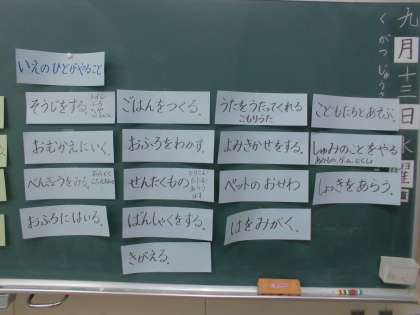 九月十三日水曜日
くがつじゅう
いえのひとがやること
そうじをする。
ごはんをつくる。
うたをうたってくれる
こもりうた
こどもたちとあそぶ。
おむかえにいく。
おふろをわかす。
よみきかせをする。
しゅみのことをやる
べんきょうをみる。
せんたくもの
ペットのおせわ
しょっきをあらう。
おふろにはいる。
ばんしゃくをする。
はをみがく。
きがえる。